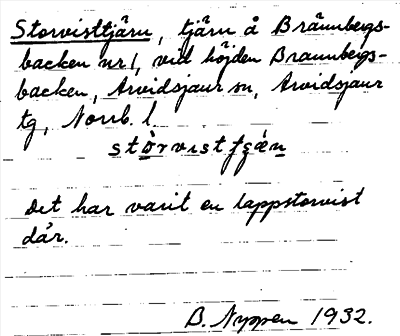 Storvisttjärn, tjärn å Brännbergs-
backen nr 1, vid höjden Brännbergs-
backen, Arvidsjaur sn, Arvidsjaur
tg, Norrb. l.
stòrvistʃǥæ̀n
Det har varit en lappstorvist
där.
B. Nyppen 1932.